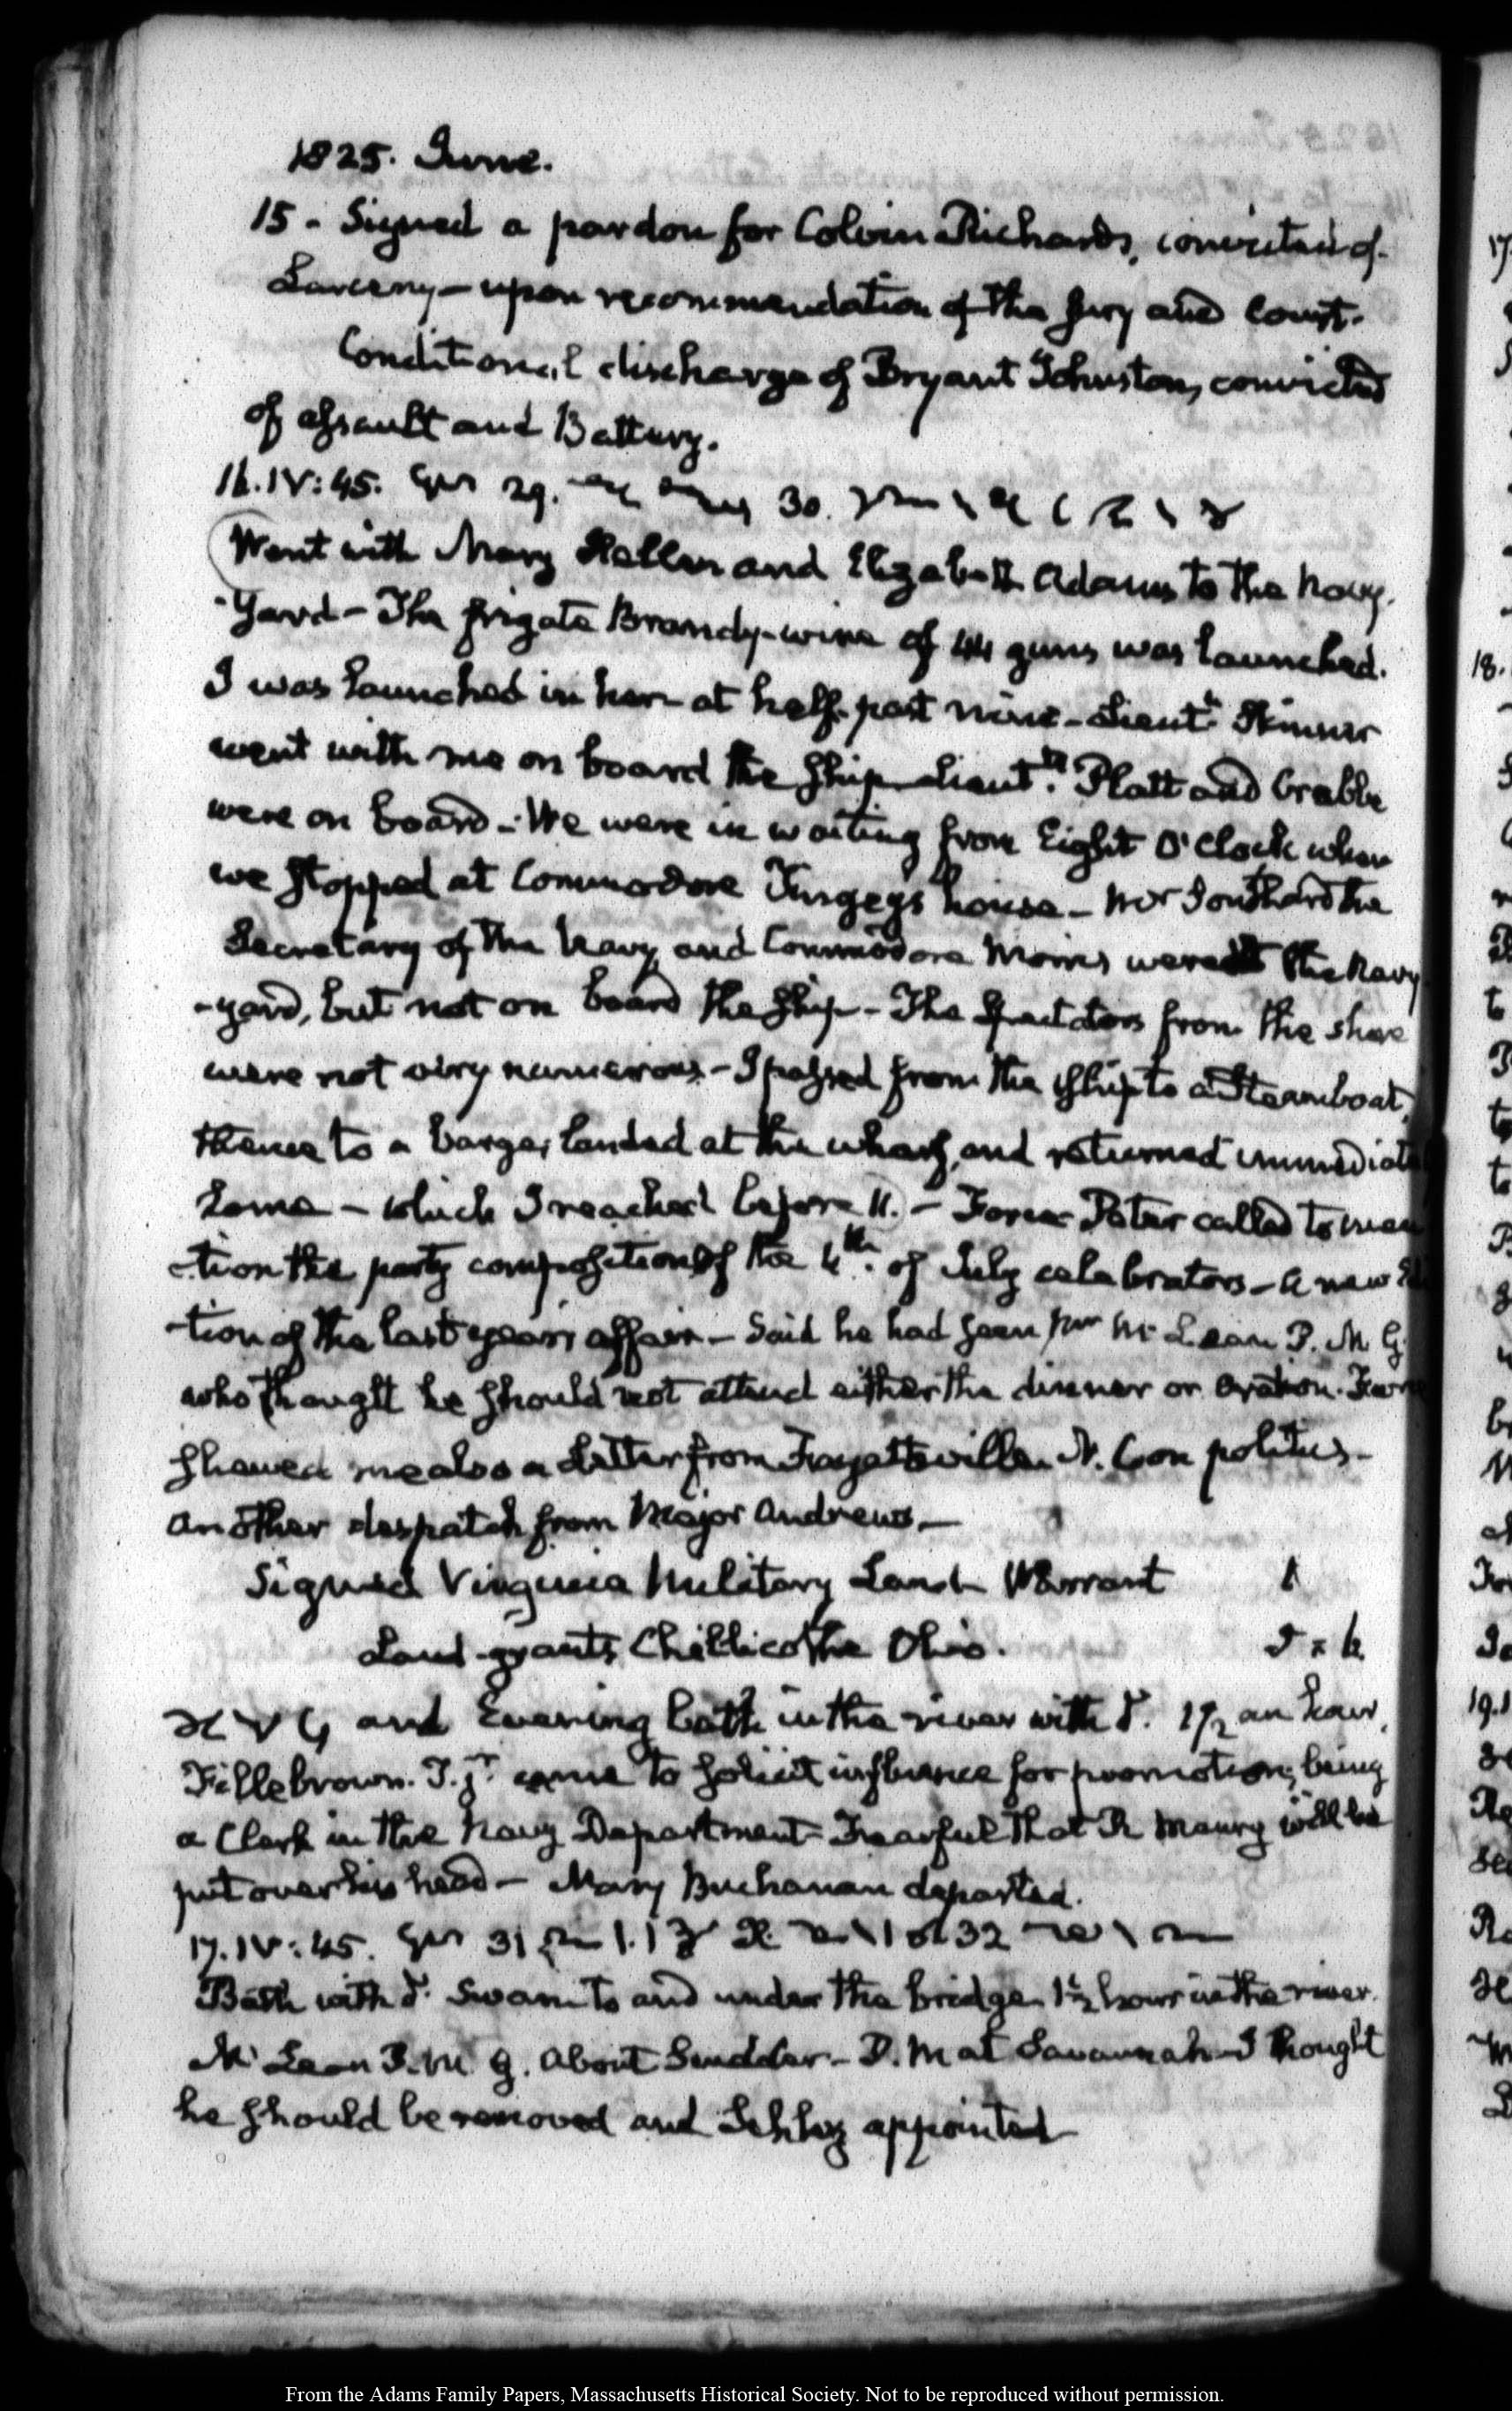 1825. June.
15 - Signed a pardon for Colvin Richards, convicted of
Larceny - upon recommendation of the Jury and Court.
Conditional discharge of Bryant Johnston, convicted
of assault and Battery.
16. IV:45. 29. 30.
Went with Mary Hellen and Elizabeth Adams to the Navy
-Yard - The frigate Brandy-wine of 44 guns was launched.
I was launched in her at half past nine - Lieut.t Skinner
went with me on board the Ship Lieut.ts Platt and Crabbe
were on board - We were in waiting from Eight O'Clock when
we stopped at Commodore Tingey's house - Mr Southard the
Secretary of the Navy and Commodore Morris were at the Navy
-yard, but not on board the Ship - The Spectators from the shore
were not very numerous - I passed from the Ship to a Steamboat,
thence to a barge, landed at the wharf, and returned immediate
home - which I reached before 11. - Force Peter called to men
-tion the party composition of the 4th. of July celebrators - a new
-tion of the last year's affair - Said he had seen Mr McLean P. M. G.
who thought he should not attend either the dinner or Oration.
shewed me also a Letter from Fayetteville N. C on politics -
another despatch from Major Andrews -
Signed Virginia Military Land Warrant 1
Land-grants Chillicothe Ohio.
and Evening bath in the river with J. 1 1/2 an hour.
Fillebrown. T. jr. came to solicit influence for promotion, being
a Clerk in the Navy Department - Fearful that R Maury will be
put over his head - Mary Buchanan departed.
17. IV:45. 31 32
Bath with J. Swam to and under the bridge. 1 1/2 hour in the river.
McLean P. M. G. about Scudder - D. M at Savannah - I thought
he should be removed and Schley appointed
From the Adams Family Papers, Massachusetts Historical Society. Not to be reproduced without permission.